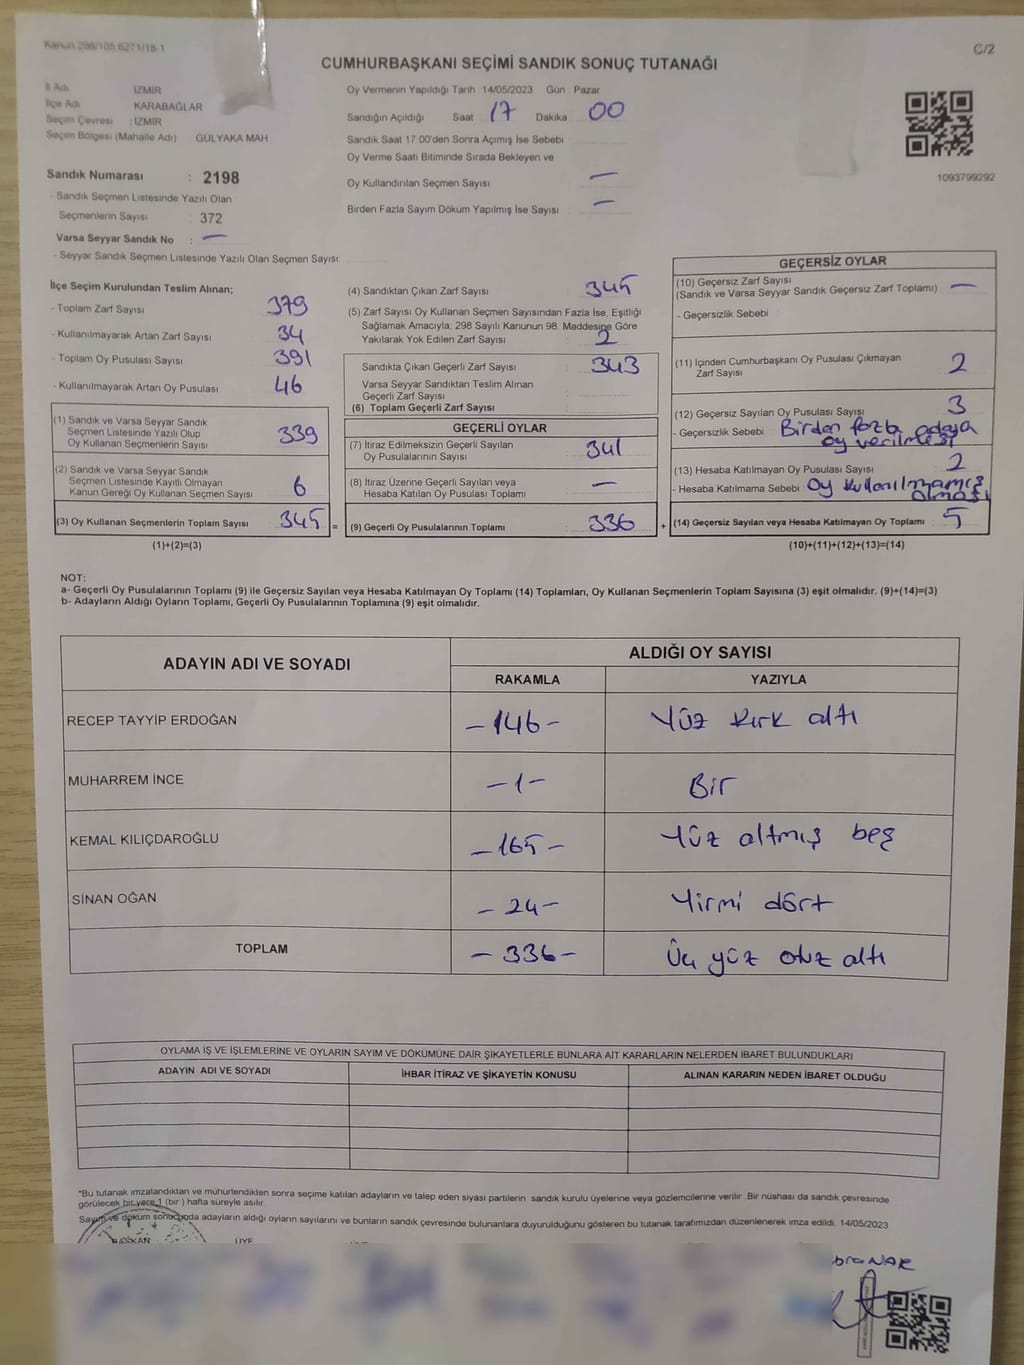 Kanun 298/105 6271/18-1
C/2
CUMHURBAŞKANI SEÇİMİ SANDIK SONUÇ TUTANAĞI
İl Adı : İZMİR
İlçe Adı : KARABAĞLAR
Seçim Çevresi : İZMİR
Seçim Bölgesi (Mahalle Adı) GÜLYAKA MAH
Sandık Numarası : 2198
- Sandık Seçmen Listesinde Yazılı Olan
Seçmenlerin Sayısı : 372
Varsa Seyyar Sandık No : —
- Seyyar Sandık Seçmen Listesinde Yazılı Olan Seçmen Sayısı
Oy Vermenin Yapıldığı Tarih 14/05/2023 Gün : Pazar
Sandığın Açıldığı Saat 17 Dakika 00
Sandık Saat 17 00'den Sonra Açımış İse Sebebi
Oy Verme Saati Bitiminde Sırada Bekleyen ve
Oy Kullandırılan Seçmen Sayısı —
Birden Fazla Sayım Döküm Yapılmış İse Sayısı —
1093799292
İlçe Seçim Kurulundan Teslim Alınan;
- Toplam Zarf Sayısı 379
- Kullanılmayarak Artan Zarf Sayısı 34
- Toplam Oy Pusulası Sayısı 391
- Kullanılmayarak Artan Oy Pusulası 46
(1) Sandık ve Varsa Seyyar Sandık
Seçmen Listesinde Yazılı Olup
Oy Kullanan Seçmenlerin Sayısı 339
(2) Sandık ve Varsa Seyyar Sandık
Seçmen Listesinde Kayıtlı Olmayan
Kanun Gereği Oy Kullanan Seçmen Sayısı 6
(3) Oy Kullanan Seçmenlerin Toplam Sayısı 345 =
(1)+(2)=(3)
(4) Sandıktan Çıkan Zarf Sayısı 345
(5) Zarf Sayısı Oy Kullanan Seçmen Sayısından Fazla İse, Eşitliği
Sağlamak Amacıyla, 298 Sayılı Kanunun 98. Maddesine Göre
Yakılarak Yok Edilen Zarf Sayısı 2
Sandıkta Çıkan Geçerli Zarf Sayısı 343
Varsa Seyyar Sandıktan Teslim Alınan
Geçerli Zarf Sayısı
(6) Toplam Geçerli Zarf Sayısı
GEÇERLİ OYLAR
(7) İtiraz Edilmeksizin Geçerli Sayılan
Oy Pusulalarının Sayısı 341
(8) İtiraz Üzerine Geçerli Sayılan veya
Hesaba Katılan Oy Pusulası Toplamı —
(9) Geçerli Oy Pusulalarının Toplamı : 336 +
GEÇERSİZ OYLAR
(10) Geçersiz Zarf Sayısı
(Sandık ve Varsa Seyyar Sandık Geçersiz Zarf Toplamı) —
- Geçersizlik Sebebi
(11) İçinden Cumhurbaşkanı Oy Pusulası Çıkmayan
Zarf Sayısı 2
(12) Geçersiz Sayılan Oy Pusulası Sayısı 3
- Geçersizlik Sebebi Birden fazla adaya
oy verilmesi
(13) Hesaba Katılmayan Oy Pusulası Sayısı 2
- Hesaba Katılmama Sebebi Oy kullanılmamış
olması
(14) Geçersiz Sayılan veya Hesaba Katılmayan Oy Toplamı 5
(10)+(11)+(12)+(13)=(14)
NOT:
a- Geçerli Oy Pusulalarının Toplamı (9) ile Geçersiz Sayılan veya Hesaba Katılmayan Oy Toplamı (14) Toplamları, Oy Kullanan Seçmenlerin Toplam Sayısına (3) eşit olmalıdır. (9)+(14)=(3)
b- Adayların Aldığı Oyların Toplamı, Geçerli Oy Pusulalarının Toplamına (9) eşit olmalıdır.
ADAYIN ADI VE SOYADI
ALDIĞI OY SAYISI
RAKAMLA YAZIYLA
RECEP TAYYİP ERDOĞAN -146- Yüz kırk altı
MUHARREM İNCE -1- Bir
KEMAL KILIÇDAROĞLU -165- Yüz altmış beş
SİNAN OĞAN -24- Yirmi dört
TOPLAM -336- Üç yüz otuz altı
OYLAMA İŞ VE İŞLEMLERİNE VE OYLARIN SAYIM VE DÖKÜMÜNE DAİR ŞİKAYETLERLE BUNLARA AİT KARARLARIN NELERDEN İBARET BULUNDUKLARI
ADAYIN ADI VE SOYADI İHBAR İTİRAZ VE ŞİKAYETİN KONUSU ALINAN KARARIN NEDEN İBARET OLDUĞU
*Bu tutanak imzalandıktan ve mühürlendikten sonra seçime katılan adayların ve talep eden siyasi partilerin sandık kurulu üyelerine veya gözlemcilerine verilir. Bir nüshası da sandık çevresinde
görülecek bir yere 1 (bir) hafta süreyle asılır.
Sayım ve döküm sonucunda adayların aldığı oyların sayılarını ve bunların sandık çevresinde bulunanlara duyurulduğunu gösteren bu tutanak tarafımızdan düzenlenerek imza edildi. 14/05/2023
BAŞKAN ÜYE